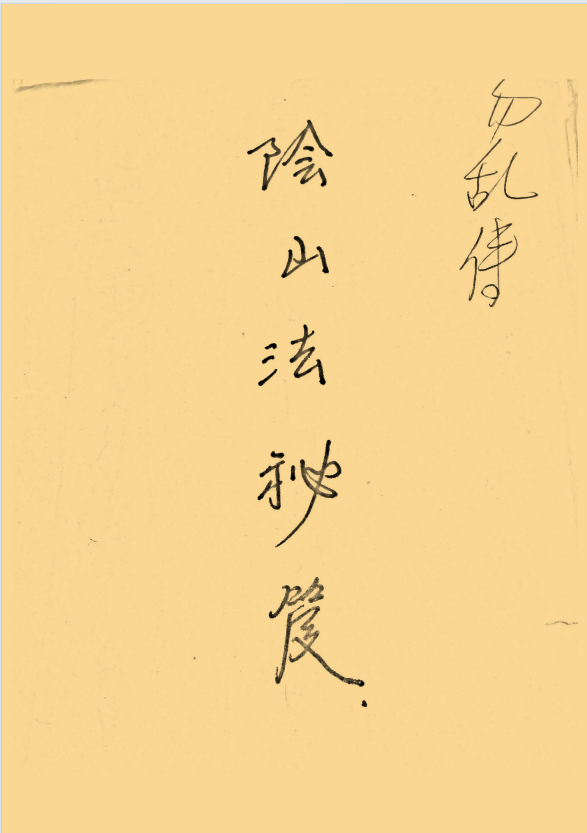 勿乱傳
陰山法秘笈